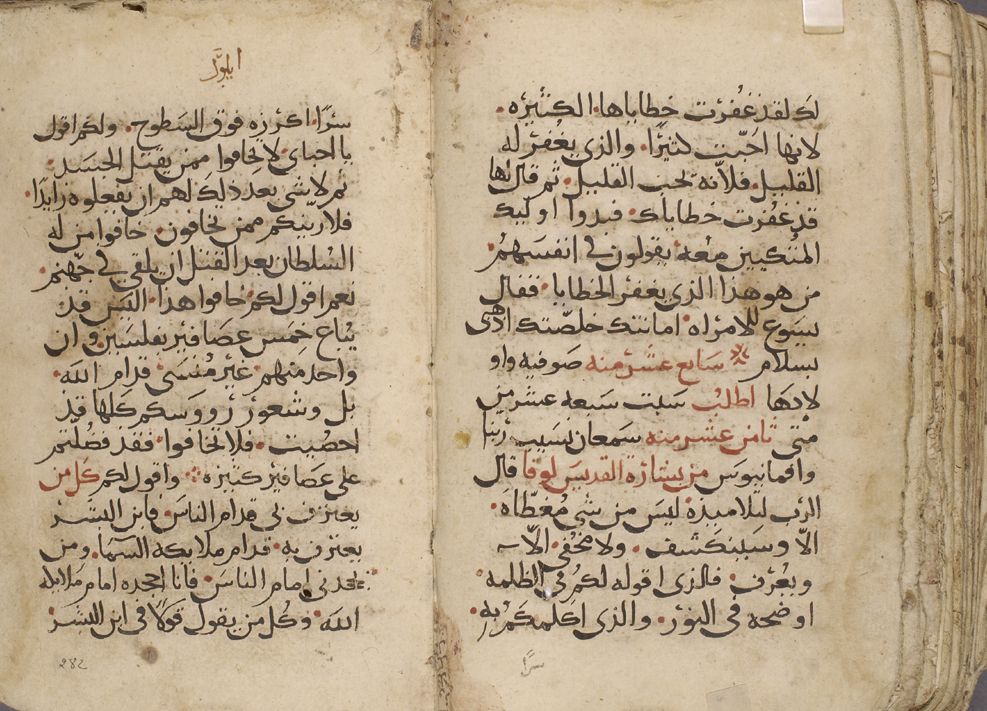 لك لقد غُفرت خطاياها الكثيره.
لانها احبّت كثيرًا. والذي يغفر له
القليل. فلانّه يحب القليل. ثم قال لها
قد غفرت خطاياك. فبدوا اوليك
المتكيين معه. يقولون في انفسهم
من هو هذا الذي يغفر الخطايا. فقال
يسوع للامراه. امانتك خلصتك اذهبى
بسلام سابع عشر منه صوفيه واو
لادها اطلب سبت سبعه عشر من
متى ثامن عشر منه سمعان نسيب ربنا
وافمانيوس من بشارة القديس لوقا قال
الرب لتلاميذه ليس من شي مغطّاه.
الاّ وسينكشف. ولا مخفى الاّ
ويعرف. فالذى اقوله لكم في الظلمه
اوضحه في النور. والذى اكلمكم به
سرًا
ايلول
سرًا. اكرزه فوق السطوح. ولكم اقول
يا احباى لا تخافوا ممن يقتل الجسد.
ثم لا شي بعد ذلك لهم ان يفعلوه زايدًا.
فلاريتكم ممن تخافون. خافوا من له
السلطان بعد القتل ان يلقي في جهنم.
نعم اقول لكم خافوا هذا. اليس قد
يباع خمس عصافير بفلسين. وان
واحد منهم. غير مُنسَى قدام الله.
بل وشعور رووسكم كلها قد
احصيت. فلا تخافوا. فقد فضلتم
على عصافير كثيره واقول لكم كل من
يعترف بي قدام الناس. فابن البشر
يعترف به. قدام ملايكه السما. ومن
جحدنى امام الناس. فانا اجحده امام ملايكه
الله. وكل من يقول قولاً في ابن البشر
282